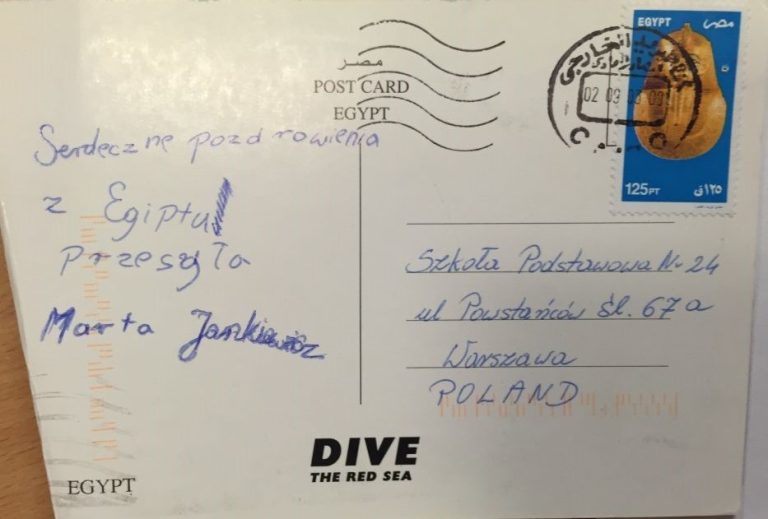 مصر
POST CARD
EGYPT
EGYPT مصر
02 09
125PT ١٢٥ق
Serdeczne pozdrowienia
z Egiptu
przesyła
Marta Jankiewicz
Szkoła Podstawowa Nr 24
ul Powstańców Śl. 67a
Warszawa
POLAND
DIVE
THE RED SEA
EGYPT